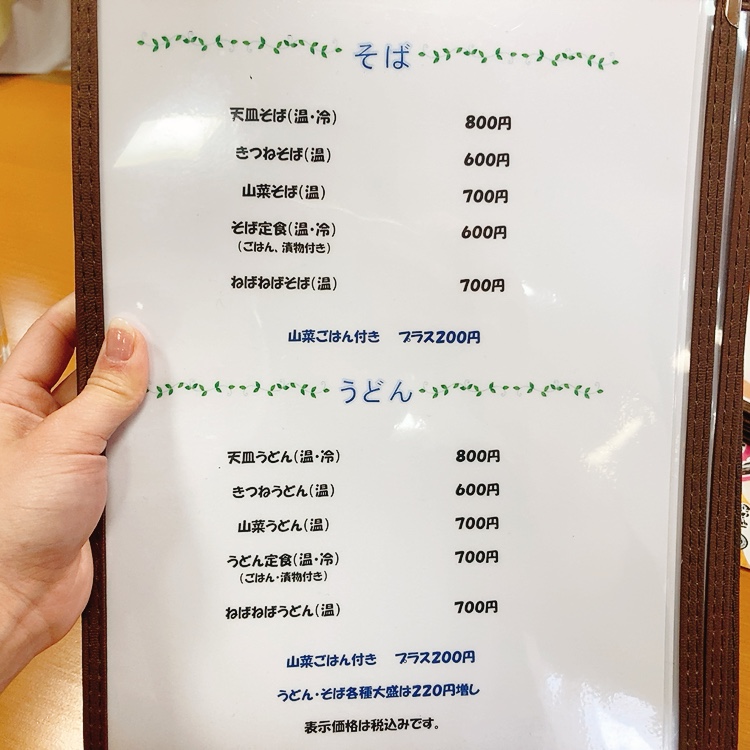 そば
天皿そば(温・冷) 800円
きつねそば(温) 600円
山菜そば(温) 700円
そば定食(温・冷) 600円
(ごはん、漬物付き)
ねばねばそば(温) 700円
山菜ごはん付き プラス200円
うどん
天皿うどん(温・冷) 800円
きつねうどん(温) 600円
山菜うどん(温) 700円
うどん定食(温・冷) 700円
(ごはん・漬物付き)
ねばねばうどん(温) 700円
山菜ごはん付き プラス200円
うどん・そば各種大盛は220円増し
表示価格は税込みです。